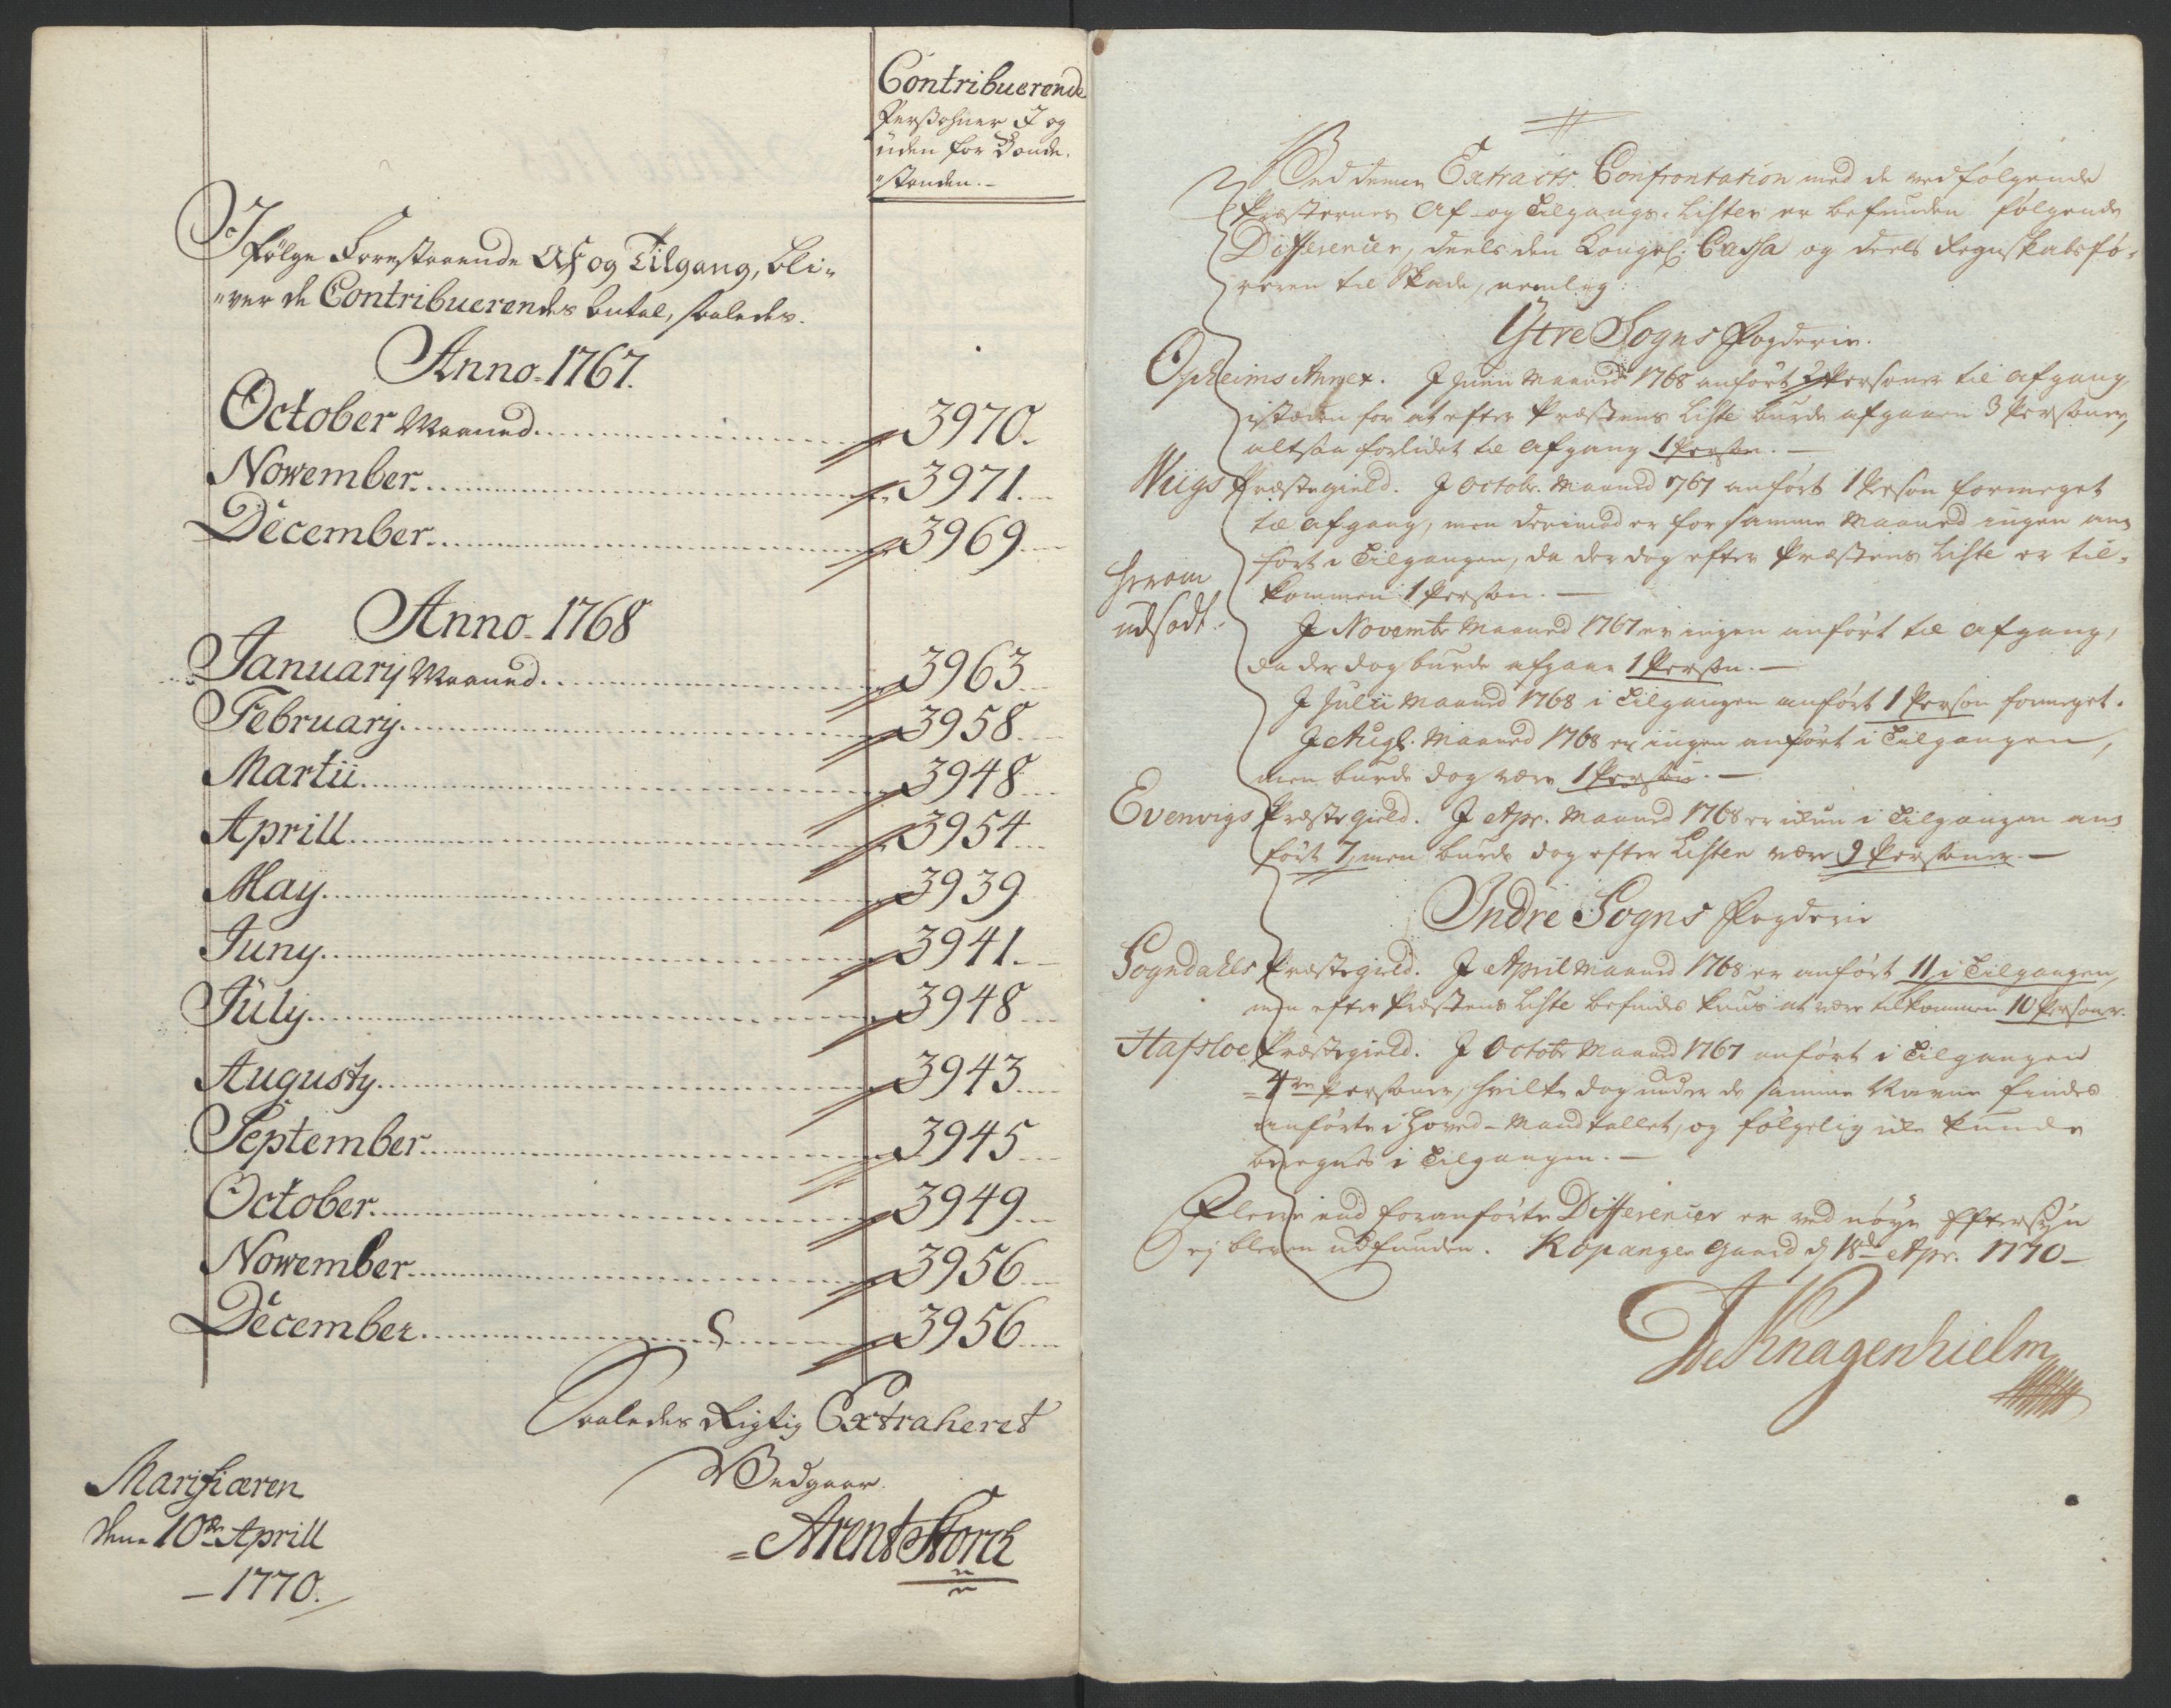 Contribuerende
Persohner I og
uden for Bonde-
"standen.-
I følge Forestaaende Af og Tilgang, bli-
"ver de Contribuerendes Antal, saaledes.
Anno-1767.
October Maaned 3970.
Nowember 3971.
December 3969
Anno-1768
Januarij Maaned 3963
Februarij 3958
Martii 3948
Aprill 3954
May 3939
Juny 3941.
July 3948
Augusty 3943
September 3945
October 3949
Nowember 3956
December 3956
Saaledes Rigtig Extraheret
Vedgaar
Marifiæren
den 10de Aprill
-1770.
=Arent Storch
Ved denne Extracts Confrontation med de vedfølgende
Præsternes Af- og Tilgangs-Lister er befunden følgende
Differencer, deels den Kongel: Cassa og deels Regnskabsfø-
reren til Skade, nemlig:
Ytre Sogns Fogderie.
Opheims Annex. I Junii Maaned 1768 anført 2 Personer til Afgang,
istæden for at efter Præstens Liste burde afgaaen 3 Personer,
altsaa forlidet til Afgang 1 Person.-
Wiigs Præstegield. I Octobr. Maaned 1767 anført 1 Person formeget
til Afgang, men derimod er for samme Maaned ingen an-
ført i Tilgangen, da der dog efter Præstens Liste er til-
kommen 1 Person.-
herom
udsadt.
I Novembr Maaned 1767 er ingen anført til Afgang,
da der dog burde afgaae 1 Person.-
I Julii Maaned 1768 i Tilgangen anført 1 Person formeget.
I Augl. Maaned 1768 er ingen anført i Tilgangen,
men burde dog være 1 Person.-
Evenvigs Præstegield. I Apr. Maaned 1768 er ikun i Tilgangen an-
ført 7, men burde dog efter Listen være 9 Personer.-
Indre Sogns Fogderie
Sogndahls Præstegield. I April Maaned 1768 er anført 11 i Tilgangen,
men efter Præstens Liste befindes kuns at være tilkommen 10 Personer.
Hafsloe Præstegield. I Octobr Maaned 1767 anført i Tilgangen
=4re Personer, hvilke dog under de samme Navne findes
anførte i Hoved-Mandtallet, og følgelig ikke kunde
beregnes i Tilgangen.-
Fleere end foranførte Differencer er ved nøye Eftersyn
ej bleven udfunden. Kopanger Gaard d 18de Apr. 1770-
De Knagenhielm